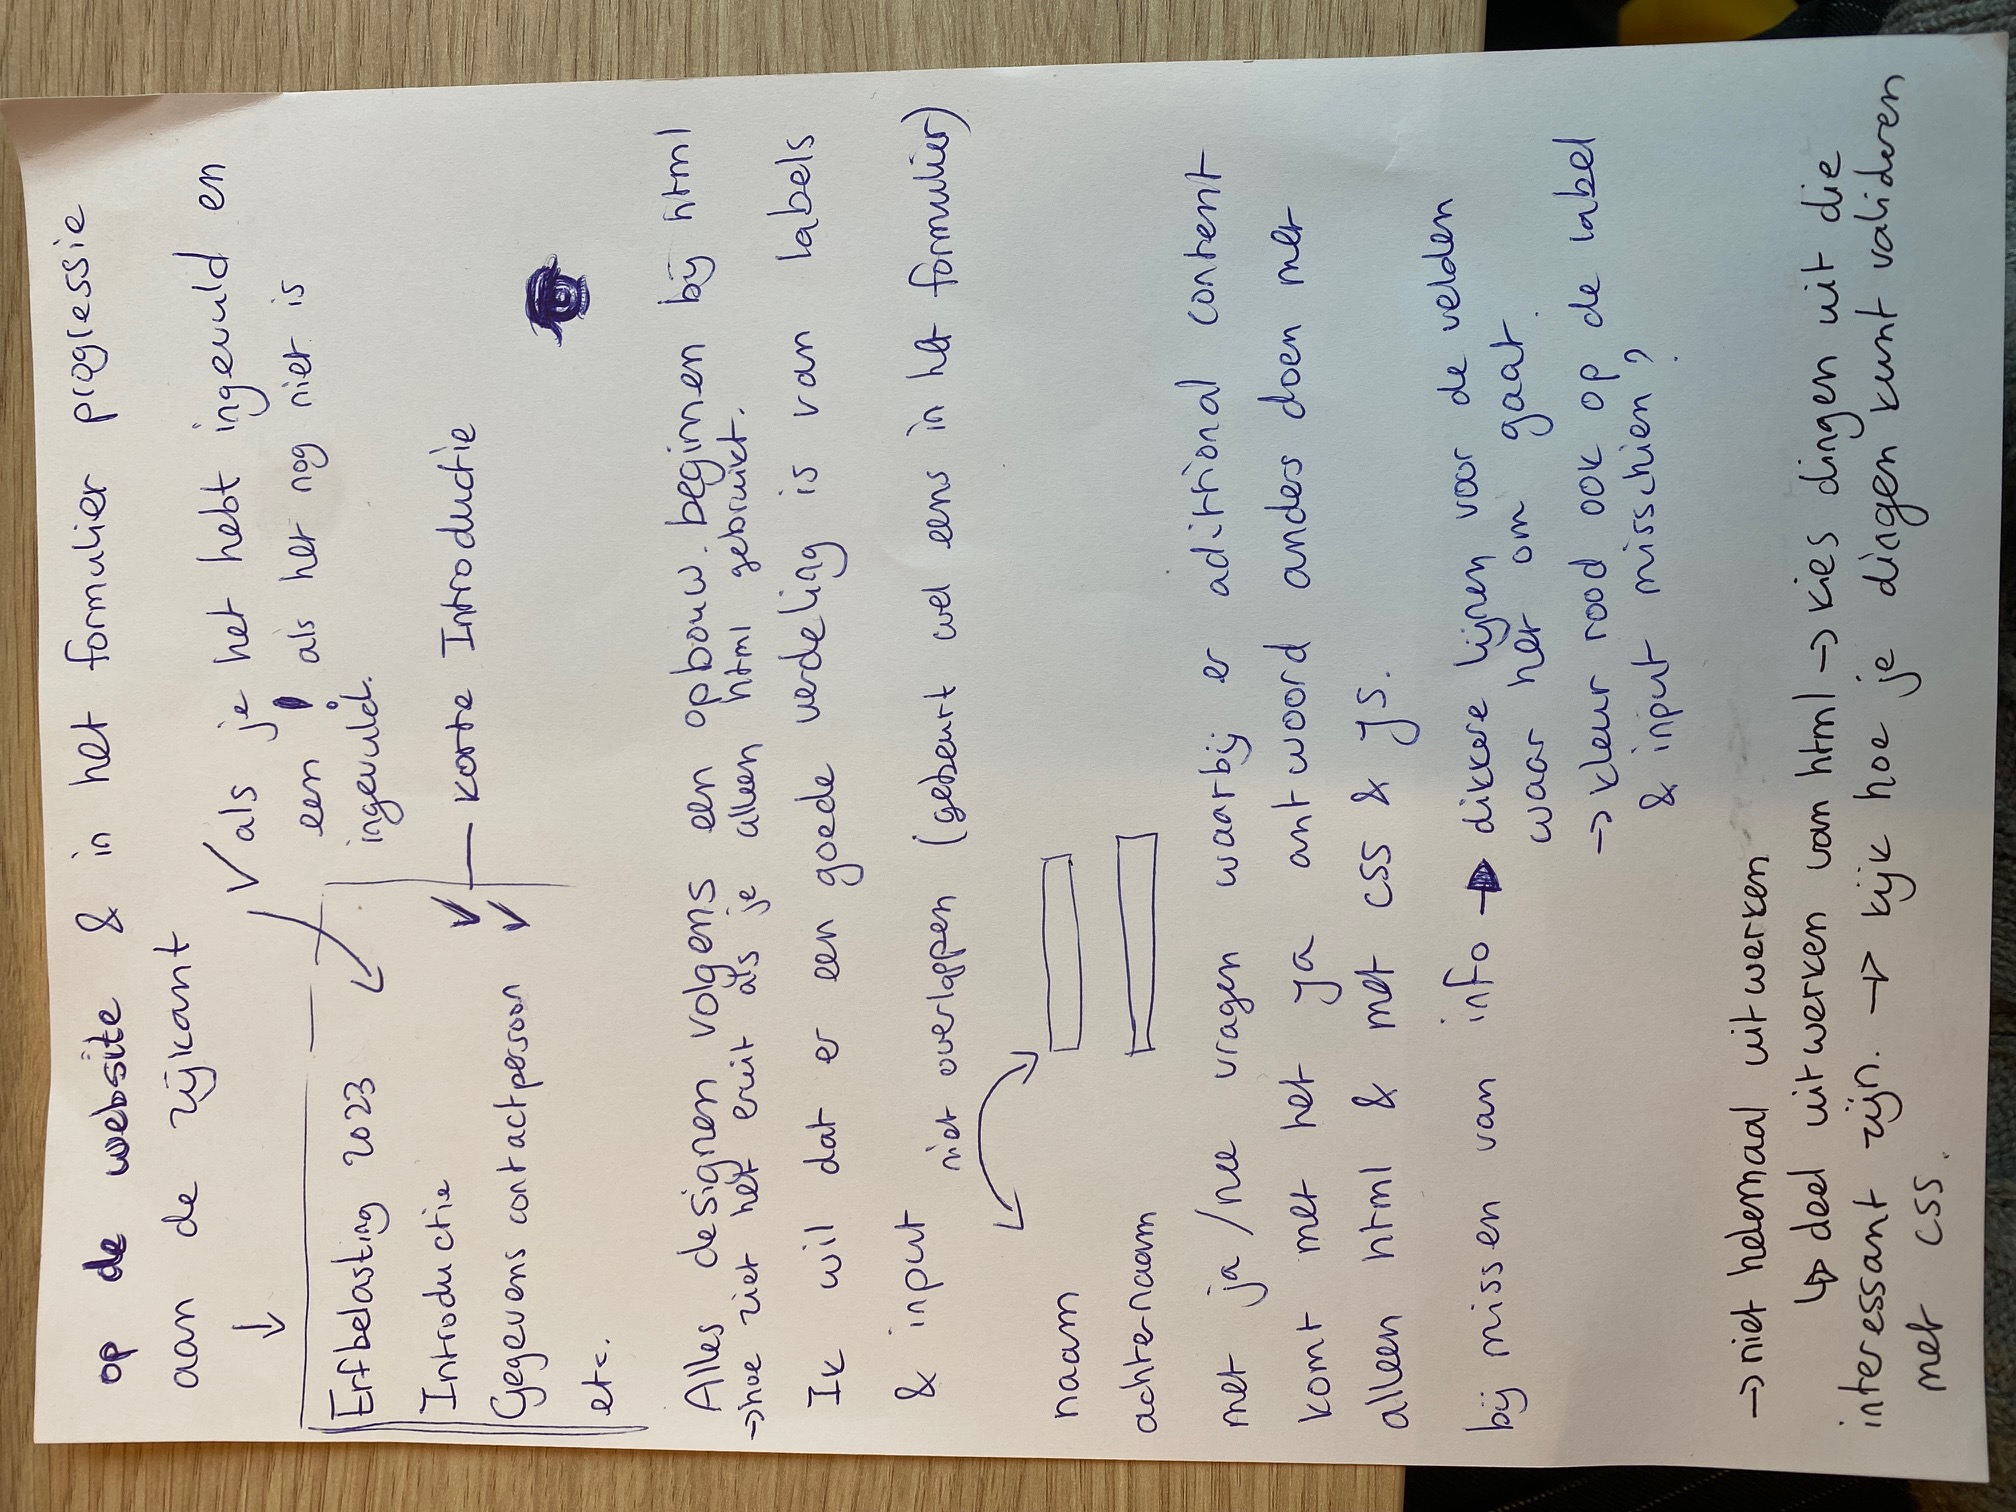 op de website & in het formulier progressie
aan de zijkant
✓ als je het hebt ingevuld en
een ! als het nog niet is
ingevuld.
Erfbelasting 2023
Introductie ✓ — korte Introductie
Gegevens contactpersoon ✓
etc.
Alles designen volgens een opbouw. beginnen bij html
→ hoe ziet het eruit als je alleen html gebruikt.
Ik wil dat er een goede verdeling is van labels
& input
niet overlappen (gebeurt wel eens in het formulier)
naam
achternaam
met ja/nee vragen waarbij er adittional content
komt met het ja antwoord anders doen met
alleen html & met css & JS.
bij missen van info → dikkere lijnen voor de velden
waar het om gaat.
→ kleur rood ook op de label
& input misschien?
→ niet helemaal uitwerken
↳ deel uitwerken van html → kies dingen uit die
interessant zijn. → kijk hoe je dingen kunt valideren
met css.